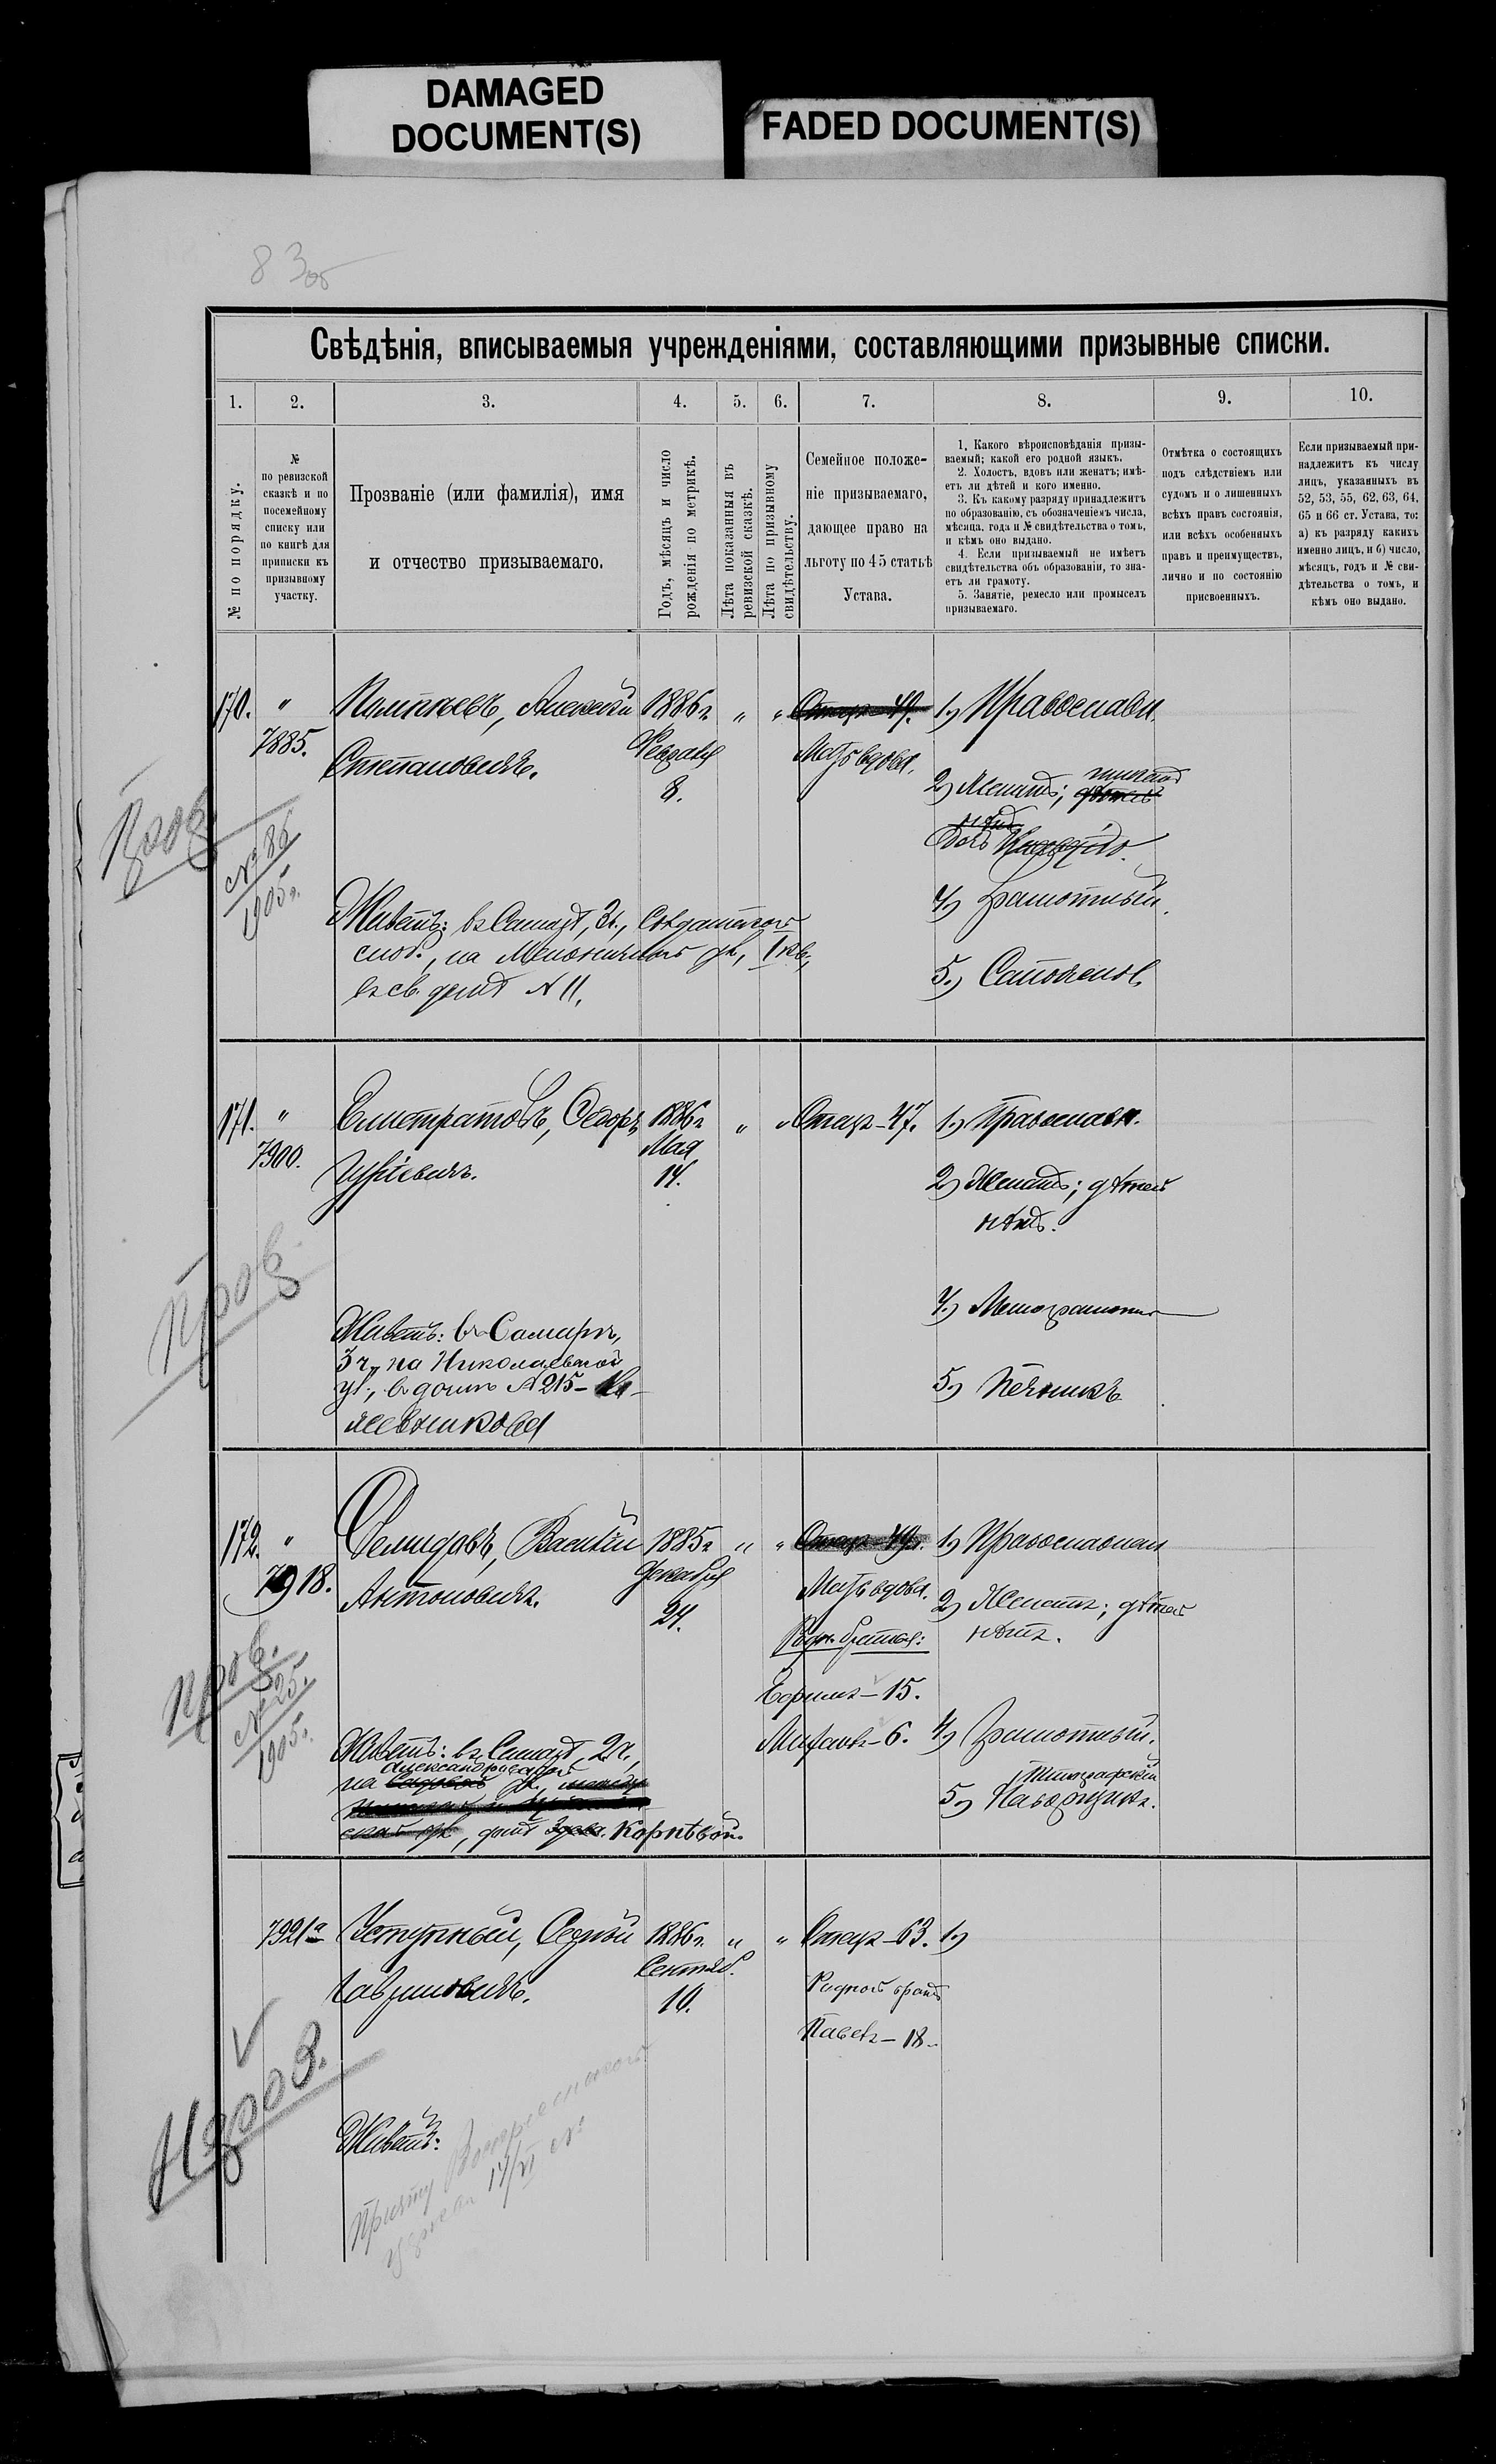 DAMAGED
DOCUMENT(S)
FADED DOCUMENT(S)
83 об
Свѣдѣнія, вписываемыя учрежденіями, составляющими призывные списки.
1.
2.
3.
4.
5.
6.
7.
8.
9.
10.
№ по порядку.
№
по ревизской
сказкѣ и по
посемейному
списку или
по книгѣ для
приписки къ
призывному
участку.
Прозваніе (или фамилія), имя
и отчество призываемаго.
Годъ, мѣсяцъ и число
рожденія по метрикѣ.
Лѣта показанныя въ
ревизской сказкѣ.
Лѣта по призывному
свидѣтельству.
Семейное положе-
ніе призываемаго,
дающее право на
льготу по 45 статьѣ
Устава.
1. Какого вѣроисповѣданія призы-
ваемый; какой его родной языкъ.
2. Холостъ, вдовъ или женатъ; имѣ-
етъ ли дѣтей и кого именно.
3. Къ какому разряду принадлежитъ
по образованію, съ обозначеніемъ числа,
мѣсяца, года и № свидѣтельства о томъ,
и кѣмъ оно выдано.
4. Если призываемый не имѣетъ
свидѣтельства объ образованіи, то зна-
етъ ли грамоту.
5. Занятіе, ремесло или промыселъ
призываемаго.
Отмѣтка о состоящихъ
подъ слѣдствіемъ или
судомъ и о лишенныхъ
всѣхъ правъ состоянія,
или всѣхъ особенныхъ
правъ и преимуществъ,
лично и по состоянію
присвоенныхъ.
Если призываемый при-
надлежитъ къ числу
лицъ, указанныхъ въ
52, 53, 55, 62, 63, 64,
65 и 66 ст. Устава, то:
а) къ разряду какихъ
именно лицъ, и б) число,
мѣсяцъ, годъ и № сви-
дѣтельства о томъ, и
кѣмъ оно выдано.
170. " Алексѣй 1886 г. " " Отецъ-49. 1) Православн.
7885. Степановичъ. Февраля Мать вдова.
8.
2) Женатъ;
Пров.
№ 86
1905 г.
4) Грамотный.
Живетъ: въ Самарѣ, 3 ч., Солдатской
слоб., на ул., 1 кв.,
въ св. домѣ № 11.
5.)
171. " Елистратовъ, Ѳедоръ 1886 г. " " Отецъ-47. 1) Православн.
7900. Гурьевичъ. Мая
14.
2) Женатъ; дѣтей
нѣтъ.
Пров.
4.) Неграмотн
Живетъ: въ Самарѣ,
3 ч., на Николаевской
ул., въ домѣ № 215-
5) Печникъ
172. " Демидовъ, Василій 1885 г. " " Отецъ-49. 1) Православный
7918. Антоновичъ. Декабря Мать вдова.
24.
2) Женатъ; дѣтей
нѣтъ.
Родн. братья:
Ефимъ-15.
Пров.
№ 25.
1905 г.
Михаилъ-6. 4) Грамотный.
Живетъ: въ Самарѣ, 2 ч.,
Александровской
на Садовой ул.,
домъ Корнѣвой.
Типографскій
5) Наборщикъ.
7921а Уступный, Сергѣй 1886 г. " " Отецъ-63. 1)
Гавриловичъ. Сентяб.
10.
Родной братъ
Павелъ-18.
Нров.
Живетъ:
Причту Воскресенской
церкви 17/VI №